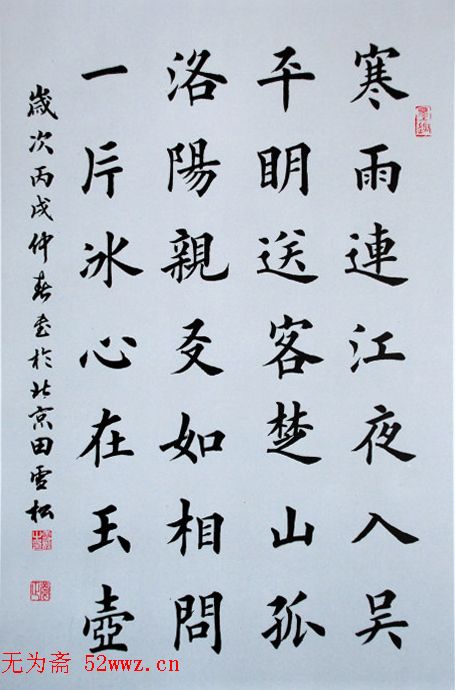 寒雨連江夜入吴
平明送客楚山孤
洛陽親友如相問
一片冰心在玉壺
歲次丙戌仲春書於北京田雪松
无为斋 52wwz.cn